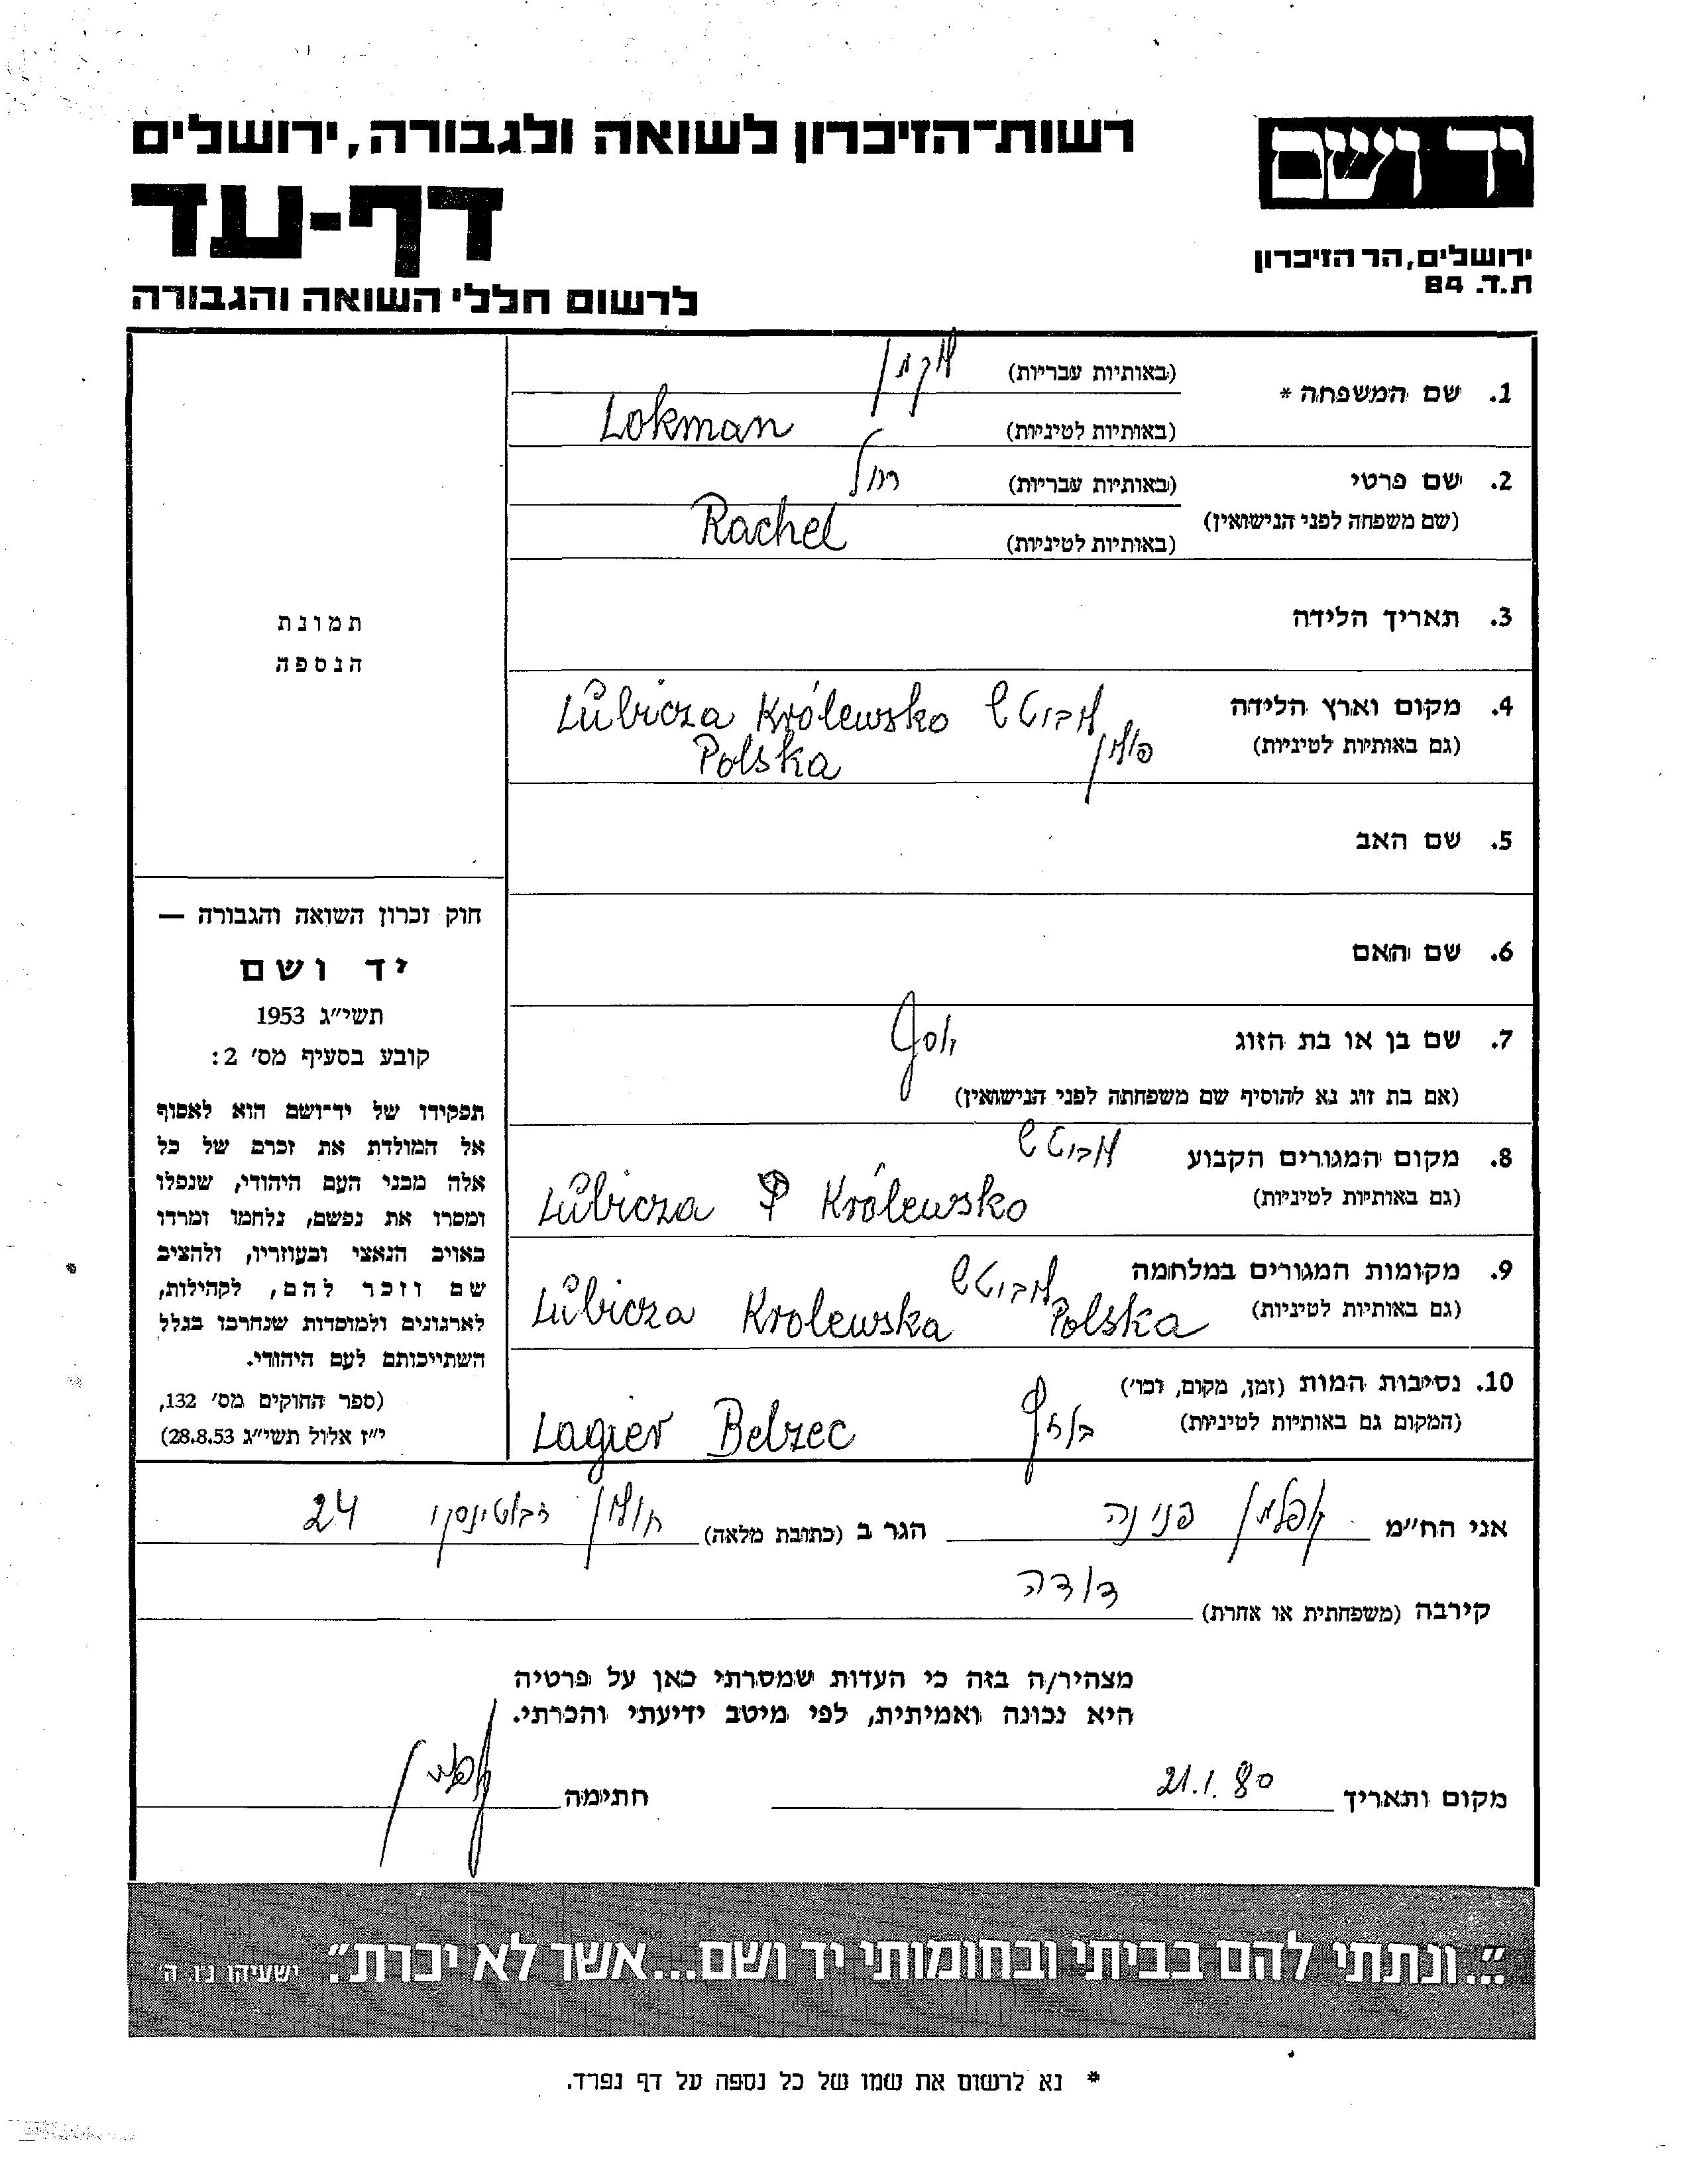 רשות־הזיכרון לשואה ולגבורה, ירושלים
יד ושם
דף-עד
ירושלים, הר הזיכרון
ת.ד. 84
לרשום חללי השואה והגבורה
1. שם המשפחה *
(באותיות עבריות) לקמן
(באותיות לטיניות) Lokman
2. שם פרטי
(באותיות עבריות) רחל
(שם משפחה לפני הנישואין)
(באותיות לטיניות) Rachel
3. תאריך הלידה
תמונת
הנספה
4. מקום וארץ הלידה
Lubicza Królewsko
(גם באותיות לטיניות) פולין
Polska
5. שם האב
6. שם האם
7. שם בן או בת הזוג יוסף
(אם בת זוג נא להוסיף שם משפחתה לפני הנישואין)
8. מקום המגורים הקבוע
(גם באותיות לטיניות) Lubicza Królewsko
9. מקומות המגורים במלחמה
(גם באותיות לטיניות) Lubicza Krolewska Polska
10. נסיבות המות (זמן, מקום, וכו')
(המקום גם באותיות לטיניות) Lagier Belzec
חוק זכרון השואה והגבורה —
יד ושם
תשי״ג 1953
קובע בסעיף מס' 2:
תפקידו של יד־ושם הוא לאסוף
אל המולדת את זכרם של כל
אלה מבני העם היהודי, שנפלו
ומסרו את נפשם, נלחמו ומרדו
באויב הנאצי ובעוזריו, ולהציב
שם וזכר להם, לקהילות,
לארגונים ולמוסדות שנחרבו בגלל
השתייכותם לעם היהודי.
(ספר החוקים מס' 132,
י״ז אלול תשי״ג 28.8.53)
אני הח״מ פנינה הגר ב (כתובת מלאה) חולון ז'בוטינסקי 24
קירבה (משפחתית או אחרת) דודה
מצהיר/ה בזה כי העדות שמסרתי כאן על פרטיה
היא נכונה ואמיתית, לפי מיטב ידיעתי והכרתי.
מקום ותאריך 21.1.80 חתימה
״...ונתתי להם בביתי ובחומותי יד ושם...אשר לא יכרת״. ישעיהו נ״ו ה'
* נא לרשום את שמו של כל נספה על דף נפרד.